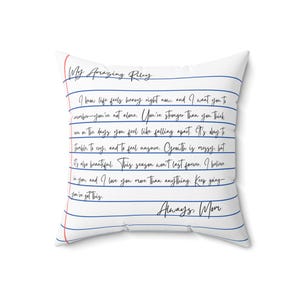 My Amazing Riley
I know life feels heavy right now, and I want you to
remember—you're not alone. You're stronger than you think
even on the days you feel like falling apart. It's okay to
stumble, to cry, and to feel unsure. Growth is messy, but
it's also beautiful. This season won't last forever. I believe
in you and I love you more than anything. Keep going—
you've got this.
Always, Mom